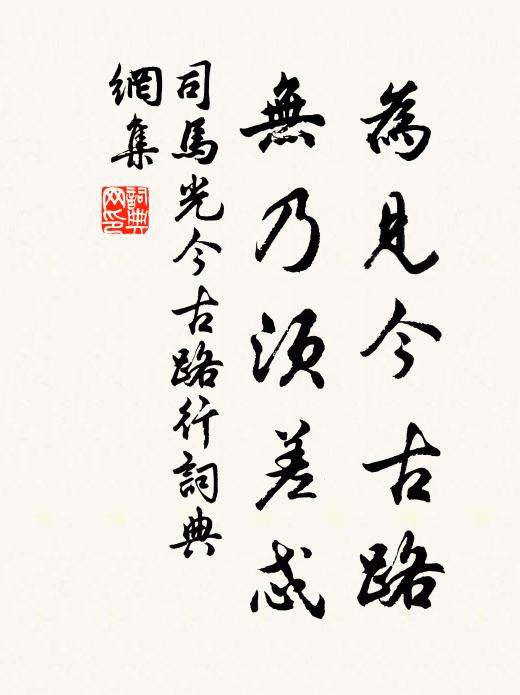 為見今古路
無乃須差忒
司馬光今古路行詞典
網集
詞典
网印